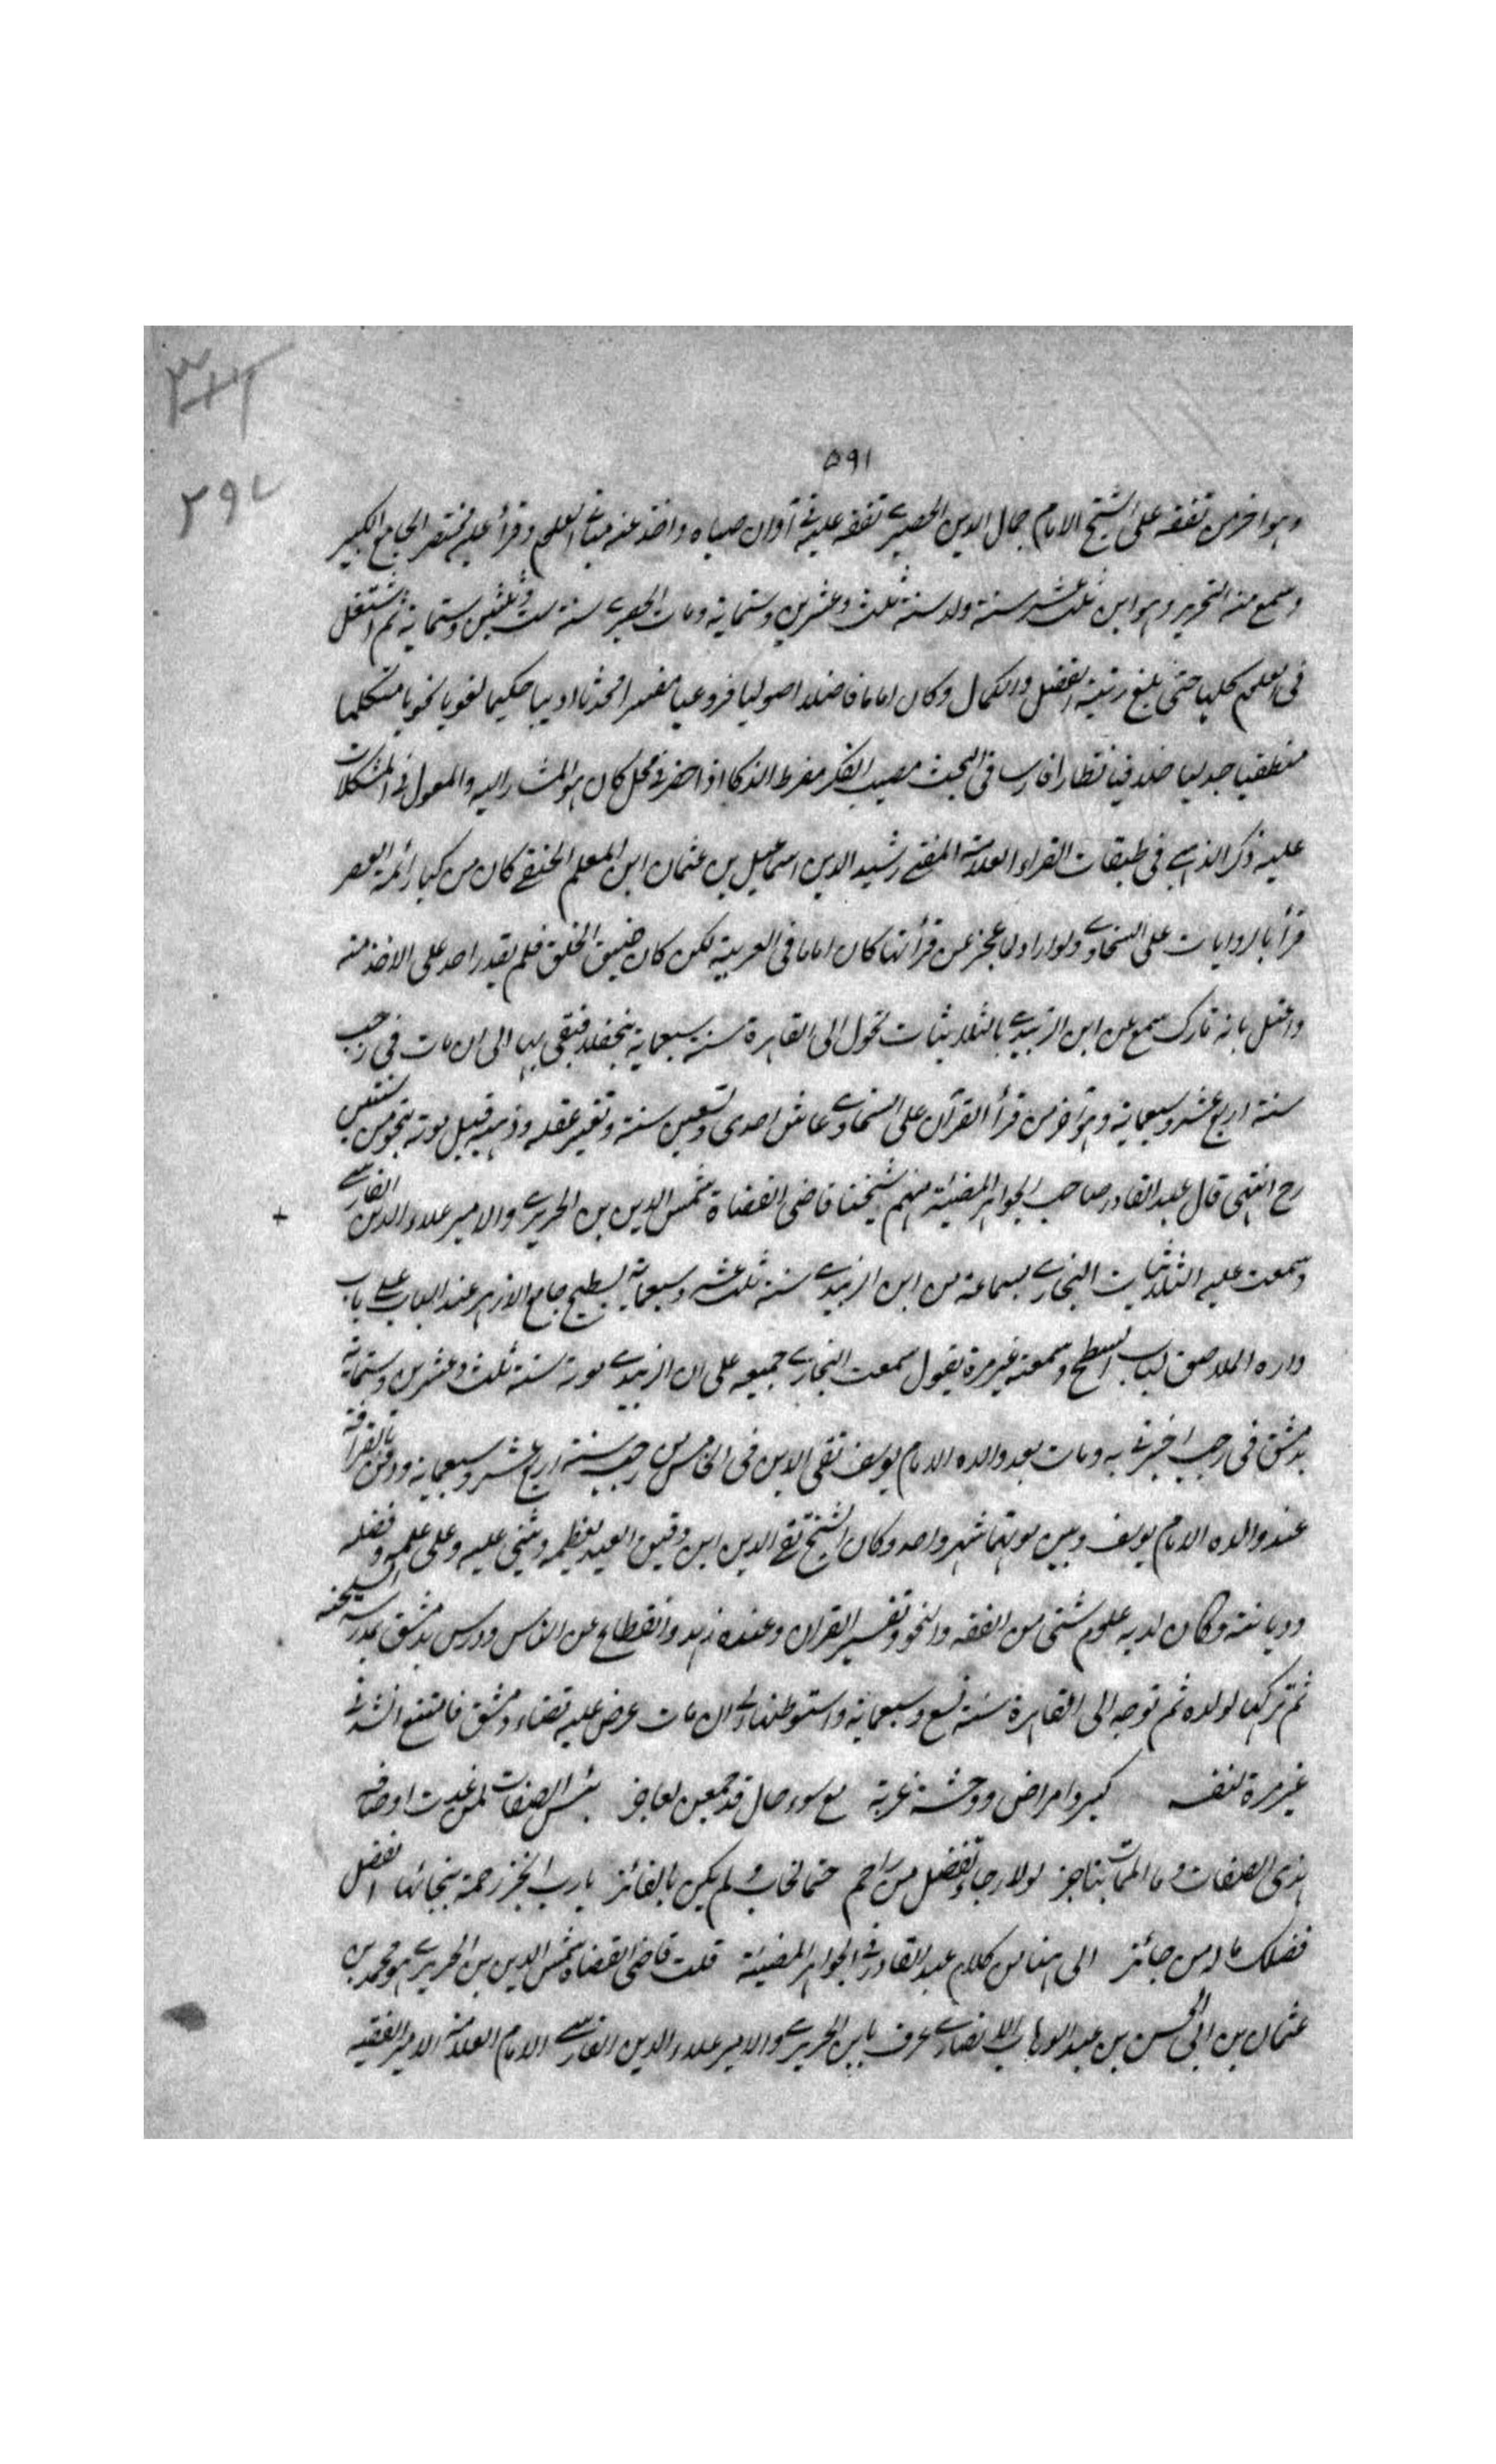 ٥٩١
٢٩٧
وهو اخر من تفقه على الشيخ الامام جمال الدين الحصيري تفقه عليه في آوان صباه واخذ عنه العلم وقرأ عليه مختصر الجامع الكبير
وسمع منه التحرير وهو ابن ثلث عشر سنة ولد سنة ثلث وعشرين وستماية ومات الحصيري سنة ست وثلثين وستماية ثم اشتغل
في العلم كليا حتى بلغ رتبة الفضل والكمال وكان اماما فاضلا اصوليا فروعيا مفسرا محدثا اديبا حكيما لغويا نحويا متكلما
منطقيا جدليا خلافيا نظارا فارسا في البحث مصيب الفكر مفرط الذكا اذا حضر في محل كان هو المشار اليه والمعول في المشكلات
عليه ذكر الذهبي في طبقات القراء العلامة المفتي رشيد الدين اسماعيل بن عثمان ابن المعلم الحنفي كان من كبار ائمة العصر
قرأ بالروايات على السخاوي ولو اراد لما عجز عن قرأتها كان اماما في العربية لكن كان ضيق الخلق فلم يقدر احد على الاخذ منه
واعتل بانه تارك سمع عن ابن الزبيدي بالثلاثيات تحول الى القاهرة سنة سبعماية فبقي بها الى ان مات في رجب
سنة اربع عشر وسبعماية وهو اخر من قرأ القرآن على السخاوي عاش احدى وتسعين سنة وتغير عقله وذهنه قبيل موته بنحو من سنتين
رح انتهى قال عبد القادر صاحب الجواهر المضيئة منهم شيخنا قاضي القضاة شمس الدين بن الحريري والامير علاء الدين الفارسي
وسمعت عليه الثلاثيات البخاري بسماعه من ابن الزبيدي سنة ثلث عشر وسبعماية بسطح جامع الازهر عند الباب على باب
داره الملاصق لباب السطح وسمعته غير مرة يقول سمعت البخاري جميعه على ابن الزبيدي سنة ثلث وعشرين وستماية
بدمشق في رجب اخبرني به ومات بعد والده الامام يوسف تقي الدين في الخامس من رجب سنة اربع عشر وسبعماية ودفن بالقرافة
عند والده الامام يوسف وبين موتهما شهر واحد وكان الشيخ تقي الدين ابن دقيق العيد يعظمه ويثني عليه وعلى علمه وفضله
وديانته وكان لديه علوم شتى من الفقه والنحو وتفسير القران وعنده زهد وانقطاع عن الناس ودرس بدمشق بمدرسة البلخية
ثم تركها لولده ثم توجه الى القاهرة سنة تسع وسبعماية واستوطنها الى ان مات عرض عليه قضاء دمشق فامتنع انشدني
غير مرة لنفسه كبر وامراض ووحشة غربة مع سوء حال قد جمعن لعاجز بئس الصفات لمن غدت اوصافه
هذي الصفات وما الممات بناجز لولا رجاء تفضل من راحم حتما لخاب ولم يكن بالفائز يا رب انجز رحمة بنجاتها افضل
فضلك ما له من حائز الى هنا من كلام عبد القادر في الجواهر المضيئة قلت قاضي القضاة شمس الدين بن الحريري هو محمد بن
عثمان بن ابي الحسن بن عبد الوهاب الانصاري عرف بابن الحريري والامير علاء الدين الفارسي الامام العلامة الامير الفقيه